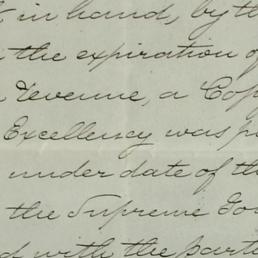 in hand, by th
the expiration of
Revenue, a Cop
Excellency was p
under date of th
the Supreme Cou
d with the parte